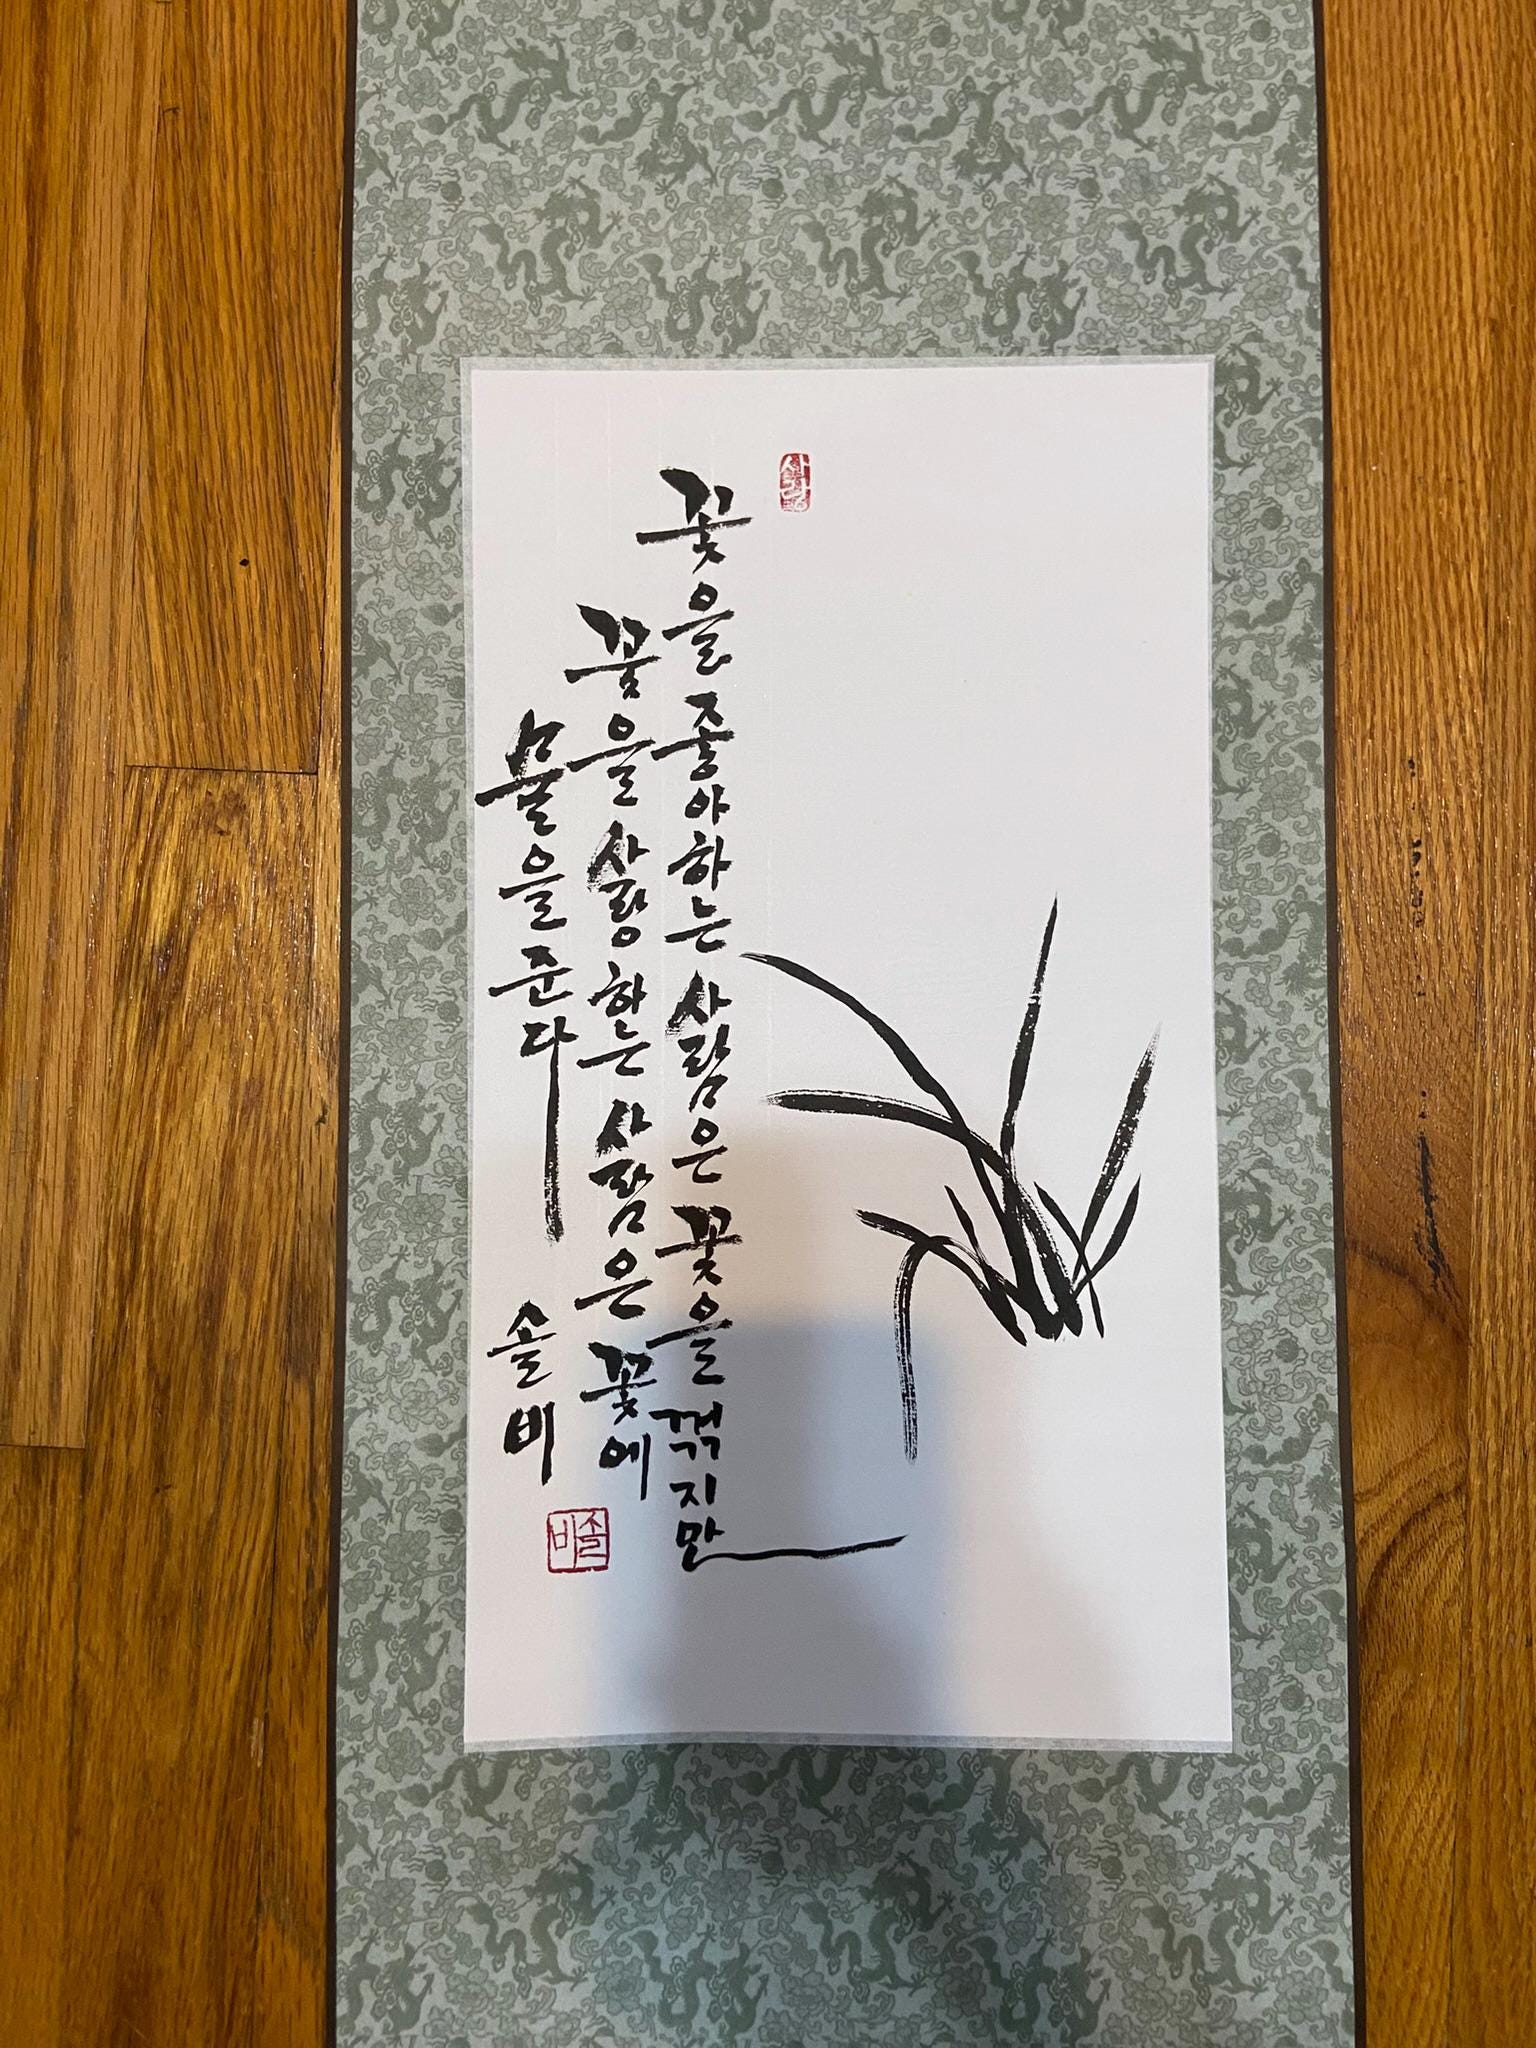 사랑
꽃을 좋아하는 사람은 꽃을 꺾지만
꽃을 사랑하는 사람은 꽃에
물을 준다
솔비
솔비